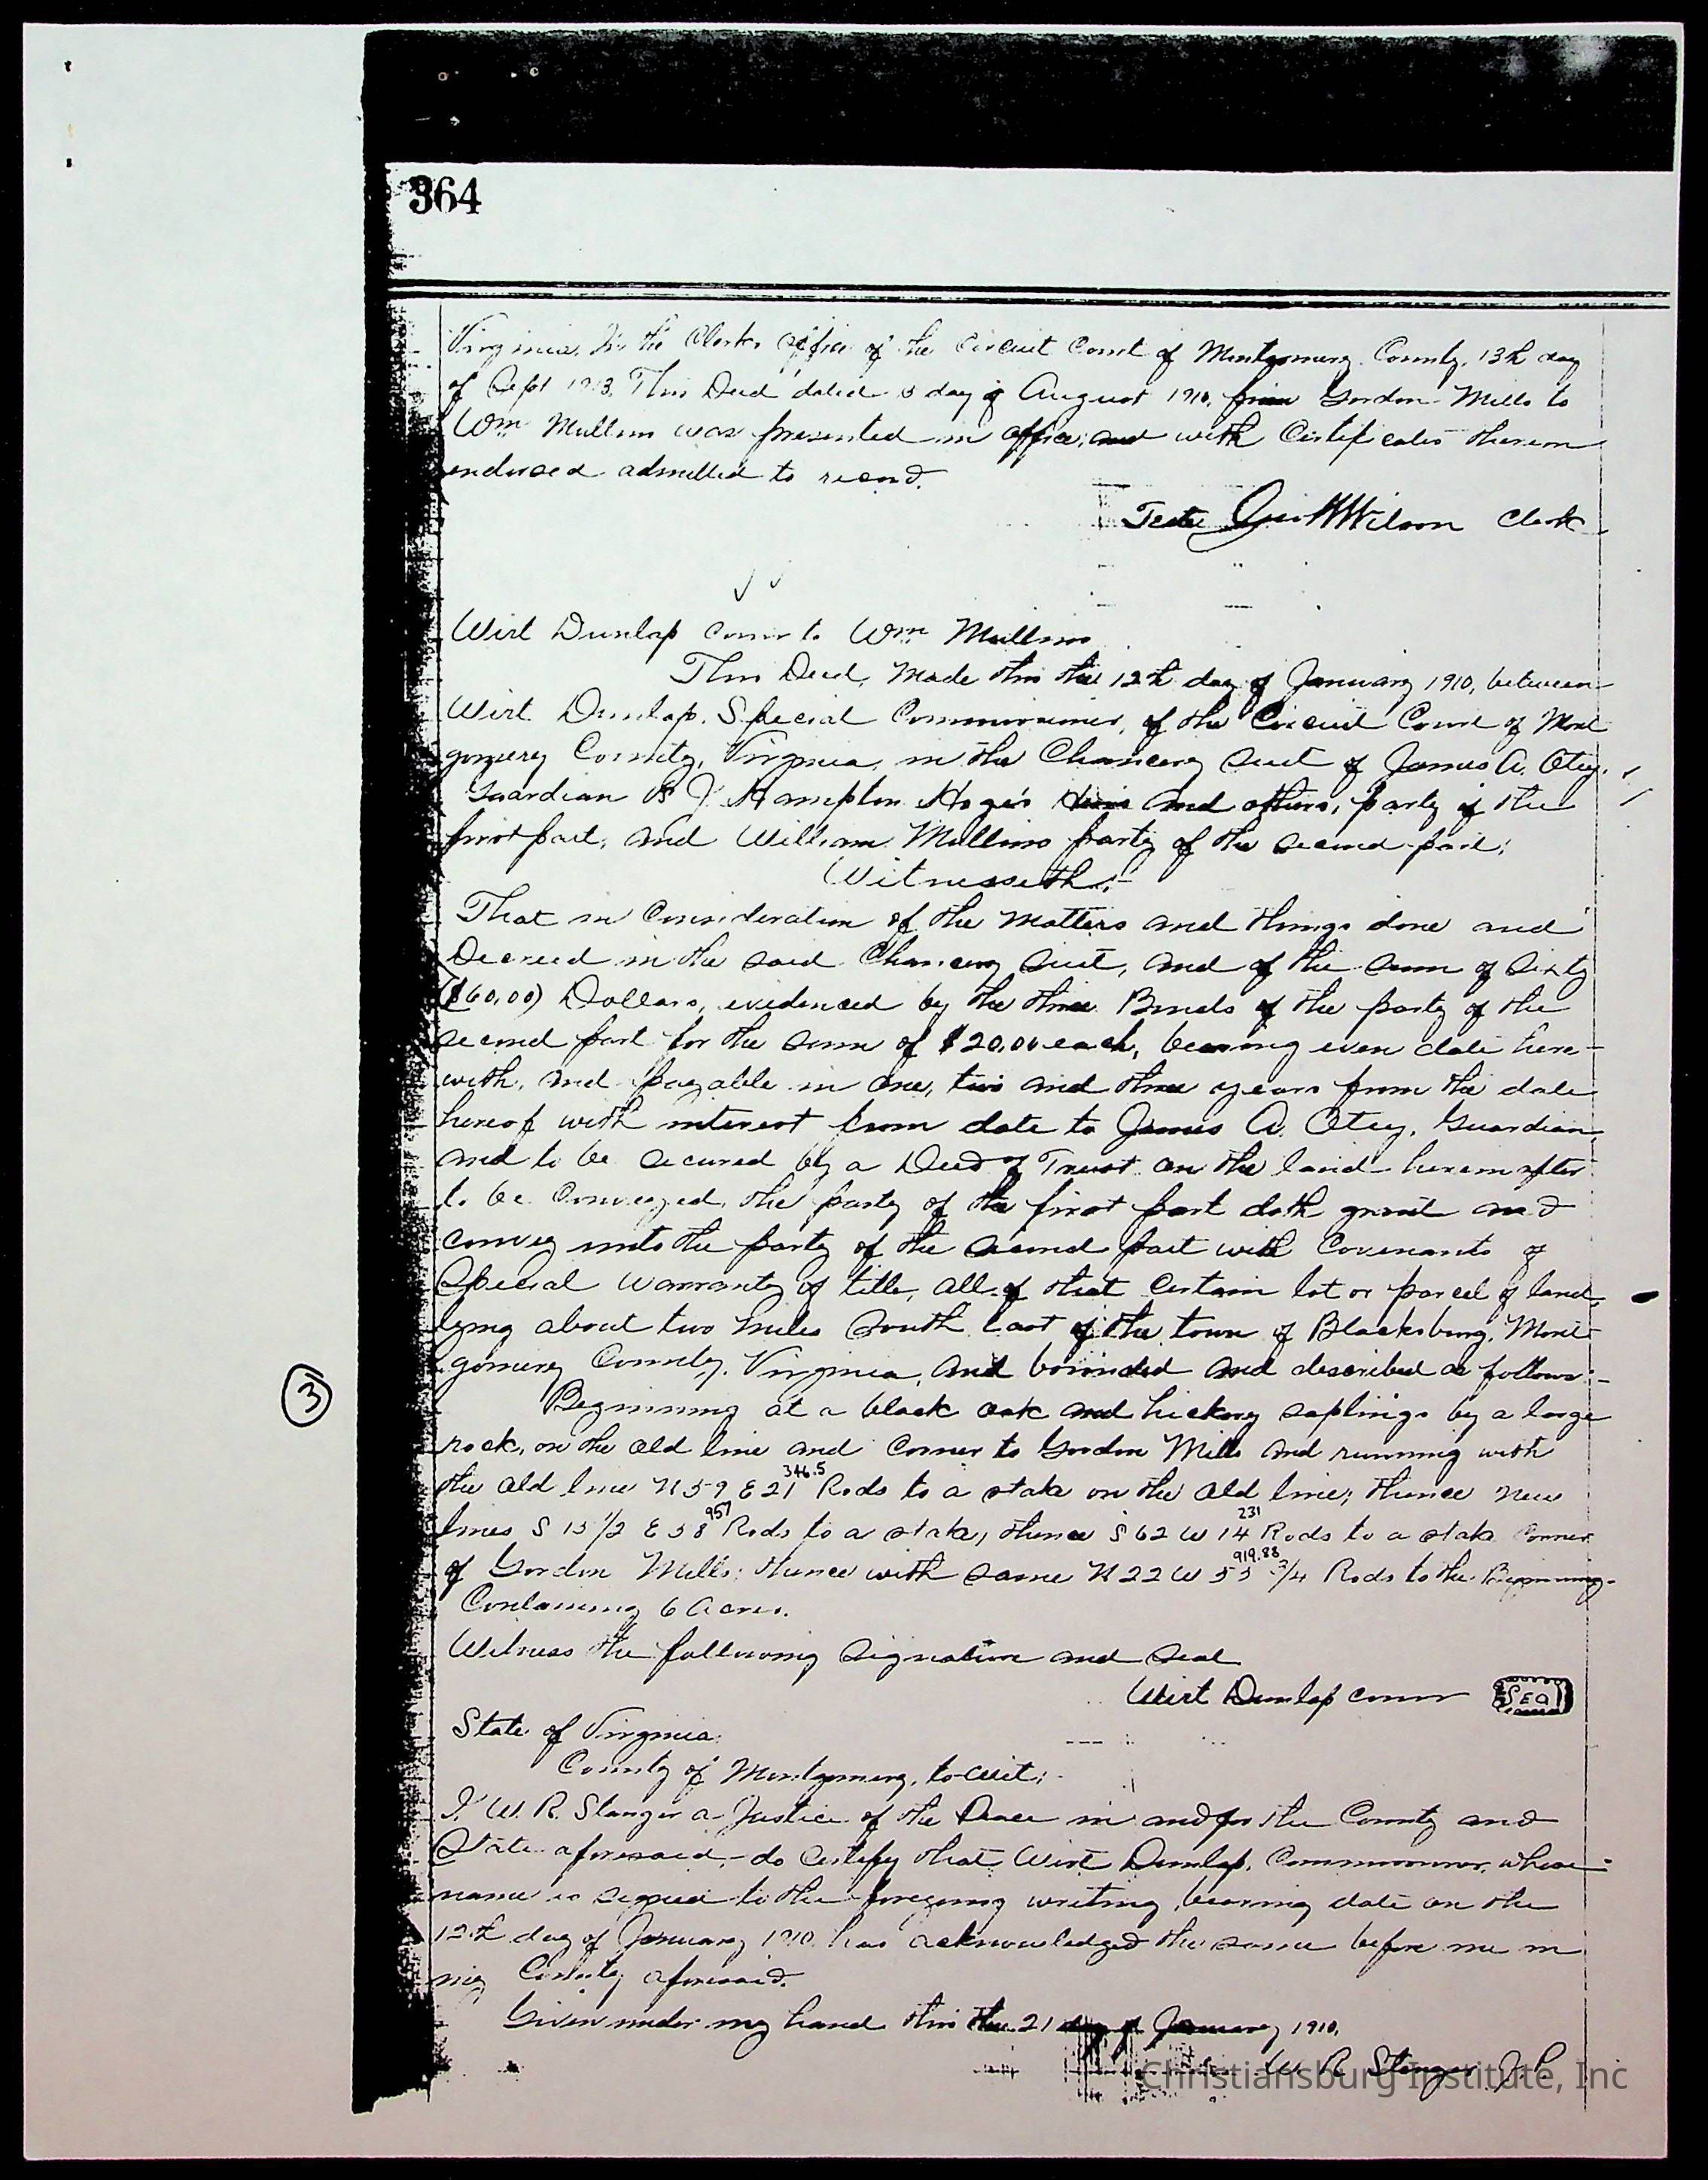 364
Virginia, In the Clerks office of the Circuit Court of Montgomery County, 13th day
of Sept 1913. This Deed dated 5 day of August 1910, from Gordon Mills to
Wm Mullins was presented in office, and with Certificates thereon
endorsed admitted to record.
Teste Geo H Wilson Clerk
Wirt Dunlap Comr to Wm Mullins
This Deed, Made this the 12th day of January 1910, between
Wirt Dunlap, Special Commissioner, of the Circuit Court of Mont
gomery County, Virginia, in the Chancery suit of James A. Otey,
Guardian vs J. Hampton Hoge's Heirs and others, party of the
first part, and William Mullins party of the second part;
Witnesseth:-
That in Consideration of the Matters and things done and
Decreed in the said Chancery suit, and of the sum of Sixty
($60.00) Dollars, evidenced by the three Bonds of the party of the
second part for the sum of $20.00 each, bearing even date here-
with, and payable in one, two and three years from the date
hereof with interest from date to James A. Otey, Guardian
and to be secured by a Deed of Trust on the land hereinafter
to be Conveyed, the party of the first part doth grant and
convey unto the party of the second part with Covenants of
Special Warranty of title, all of that certain lot or parcel of land
lying about two miles South East of the town of Blacksburg, Mont-
gomery County, Virginia, and bounded and described as follows:-
3
Beginning at a black oak and hickory saplings by a large
rock, on the old line and Corner to Gordon Mills and running with
346.5
the old line N 59 E 21 Rods to a stake on the old line; thence new
957 231
lines S 15 1/2 E 58 Rods to a stake, thence S 62 W 14 Rods to a stake Corner
919.88
of Gordon Mills; thence with same N 22 W 55 3/4 Rods to the Beginning-
Containing 6 Acres.
Witness the following signature and seal
Wirt Dunlap comr Seal
State of Virginia,
County of Montgomery, to-wit:
I, W. R. Stanger a Justice of the Peace in and for the County and
State aforesaid, do certify that Wirt Dunlap, Commissioner, whose
name is signed to the foregoing writing, bearing date on the
12th day of January 1910 has acknowledged the same before me in
my County aforesaid.
Given under my hand this the 21 day of January 1910.
W R Stanger J. P.
Christiansburg Institute, Inc